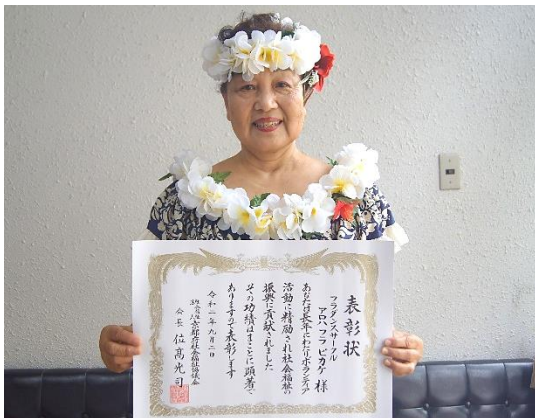 表彰状
フラダンスサークル
アロハフラピカケ 様
あなたは長年にわたりボランティア
活動に精励され社会福祉の
振興に貢献されました
その功績はまことに顕著で
ありますので表彰します
令和二年九月二日
京都府社会福祉協議会
会長 位高光司